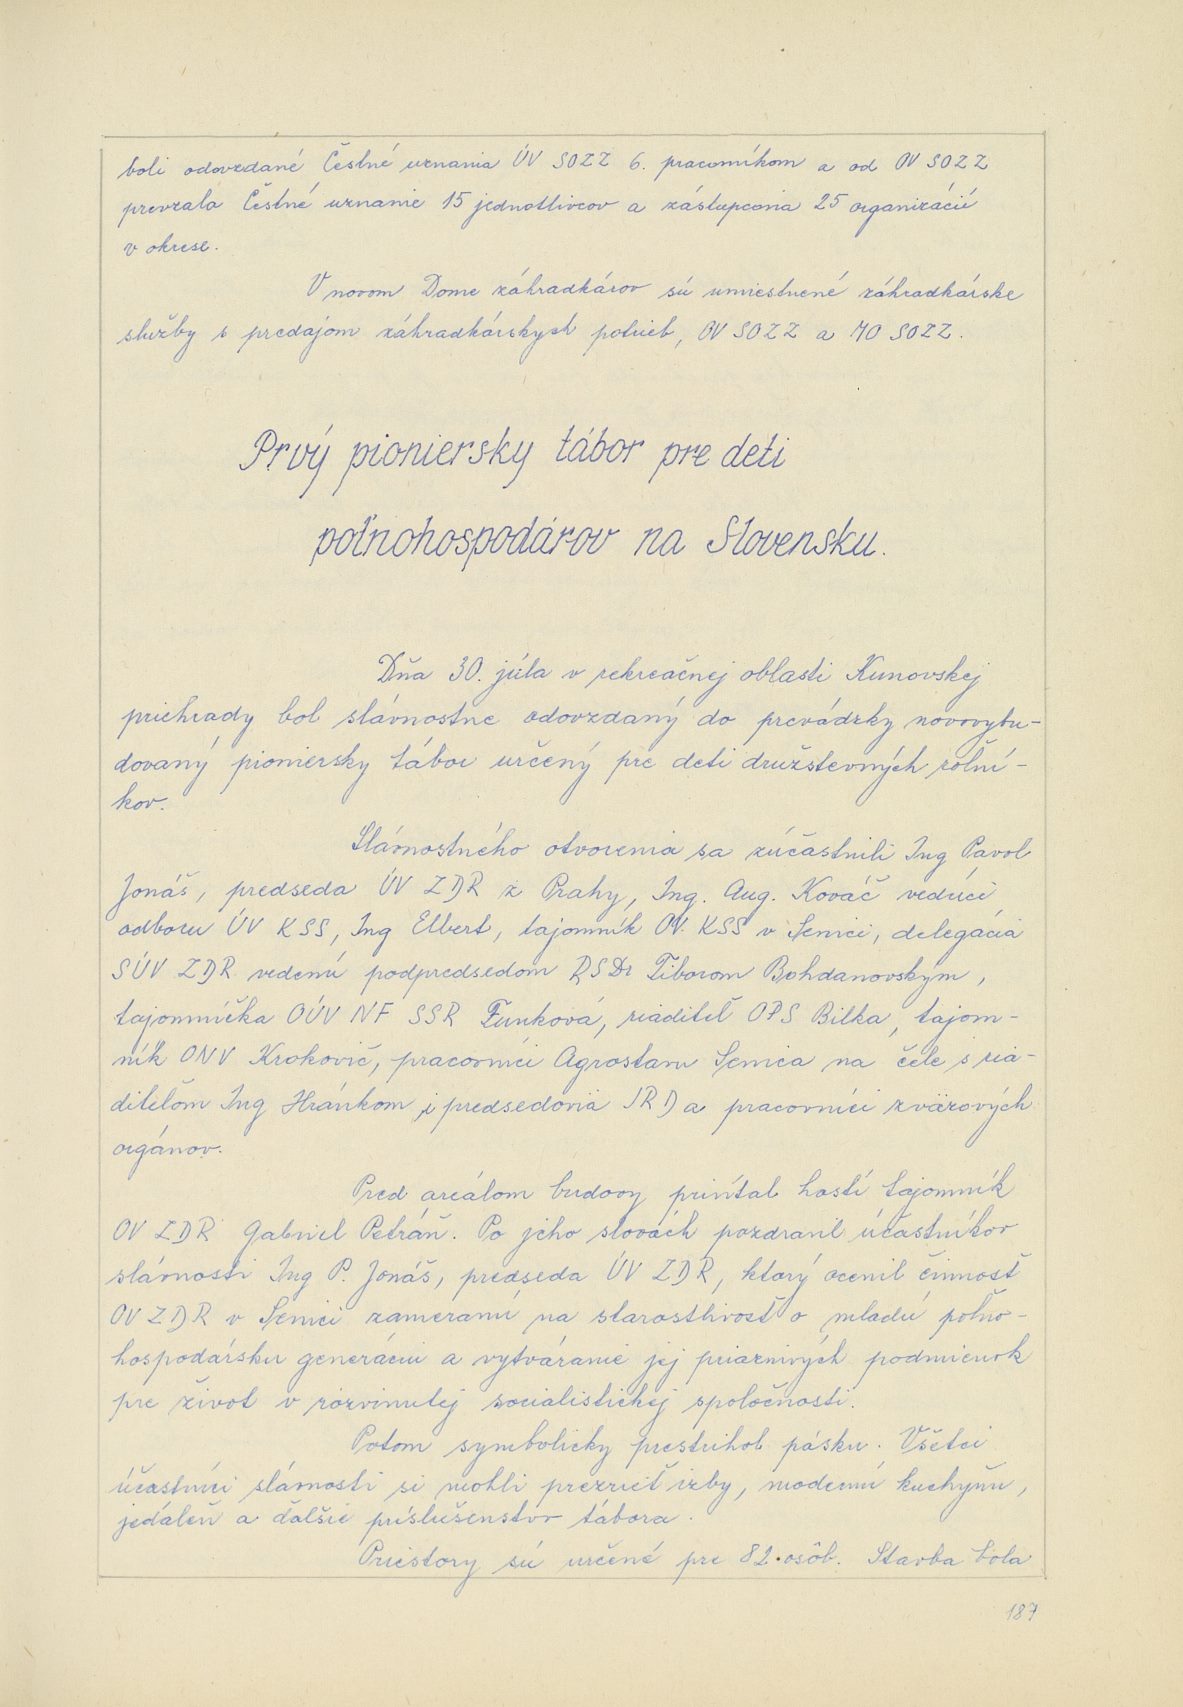 boli odovzdané Čestné uznania ÚV SOZZ 6. pracovníkom a od OV SOZZ
prevzalo Čestné uznanie 15 jednotlivcov a zástupcovia 25 organizácií
v okrese.
V novom Dome záhradkárov sú umiestnené záhradkárske
služby s predajom záhradkárskych potrieb, OV SOZZ a MO SOZZ.
Prvý pioniersky tábor pre deti
poľnohospodárov na Slovensku.
Dňa 30. júla v rekreačnej oblasti Kunovskej
priehrady bol slávnostne odovzdaný do prevádzky novovybu-
dovaný pioniersky tábor určený pre deti družstevných roľní-
kov.
Slávnostného otvorenia sa zúčastnili Ing Pavol
Jonáš, predseda ÚV ZDR z Prahy, Ing. Aug. Kováč vedúci
odboru ÚV KSS, Ing Elbert, tajomník OV KSS v Senici, delegácia
SÚV ZDR vedenú podpredsedom RSDr Tiborom Bohdanovským,
tajomníčka OÚV NF SSR Funková, riaditeľ OPS Bilka, tajom-
ník ONV Krokovič, pracovníci Agrostavu Senica na čele s ria-
diteľom Ing Hránkom i predsedovia JRD a pracovníci zväzových
orgánov.
Pred areálom budovy privítal hostí tajomník
OV ZDR Gabriel Petráň. Po jeho slovách pozdravil účastníkov
slávnosti Ing P. Jonáš, predseda ÚV ZDR, ktorý ocenil činnosť
OV ZDR v Senici zameranú na starostlivosť o mladú poľno-
hospodársku generáciu a vytváranie jej priaznivých podmienok
pre život v rozvinutej socialistickej spoločnosti.
Potom symbolicky prestrihol pásku. Všetci
účastníci slávnosti si mohli prezrieť izby, modernú kuchyňu,
jedáleň a ďalšie príslušenstvo tábora.
Priestory sú určené pre 82 osôb. Stavba bola
187